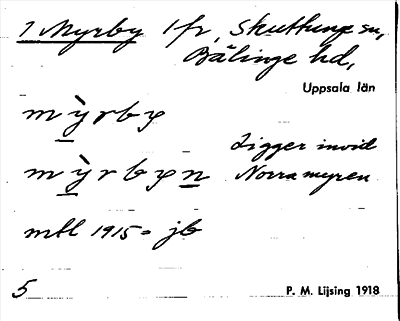 1 Myrby 1/1, Skuttunge sn,
Bälinge hd,
Uppsala län
mỳrby
Ligger invid
mỳrbyn Norra myren
mtl 1915 = jb
5
P. M. Lijsing 1918